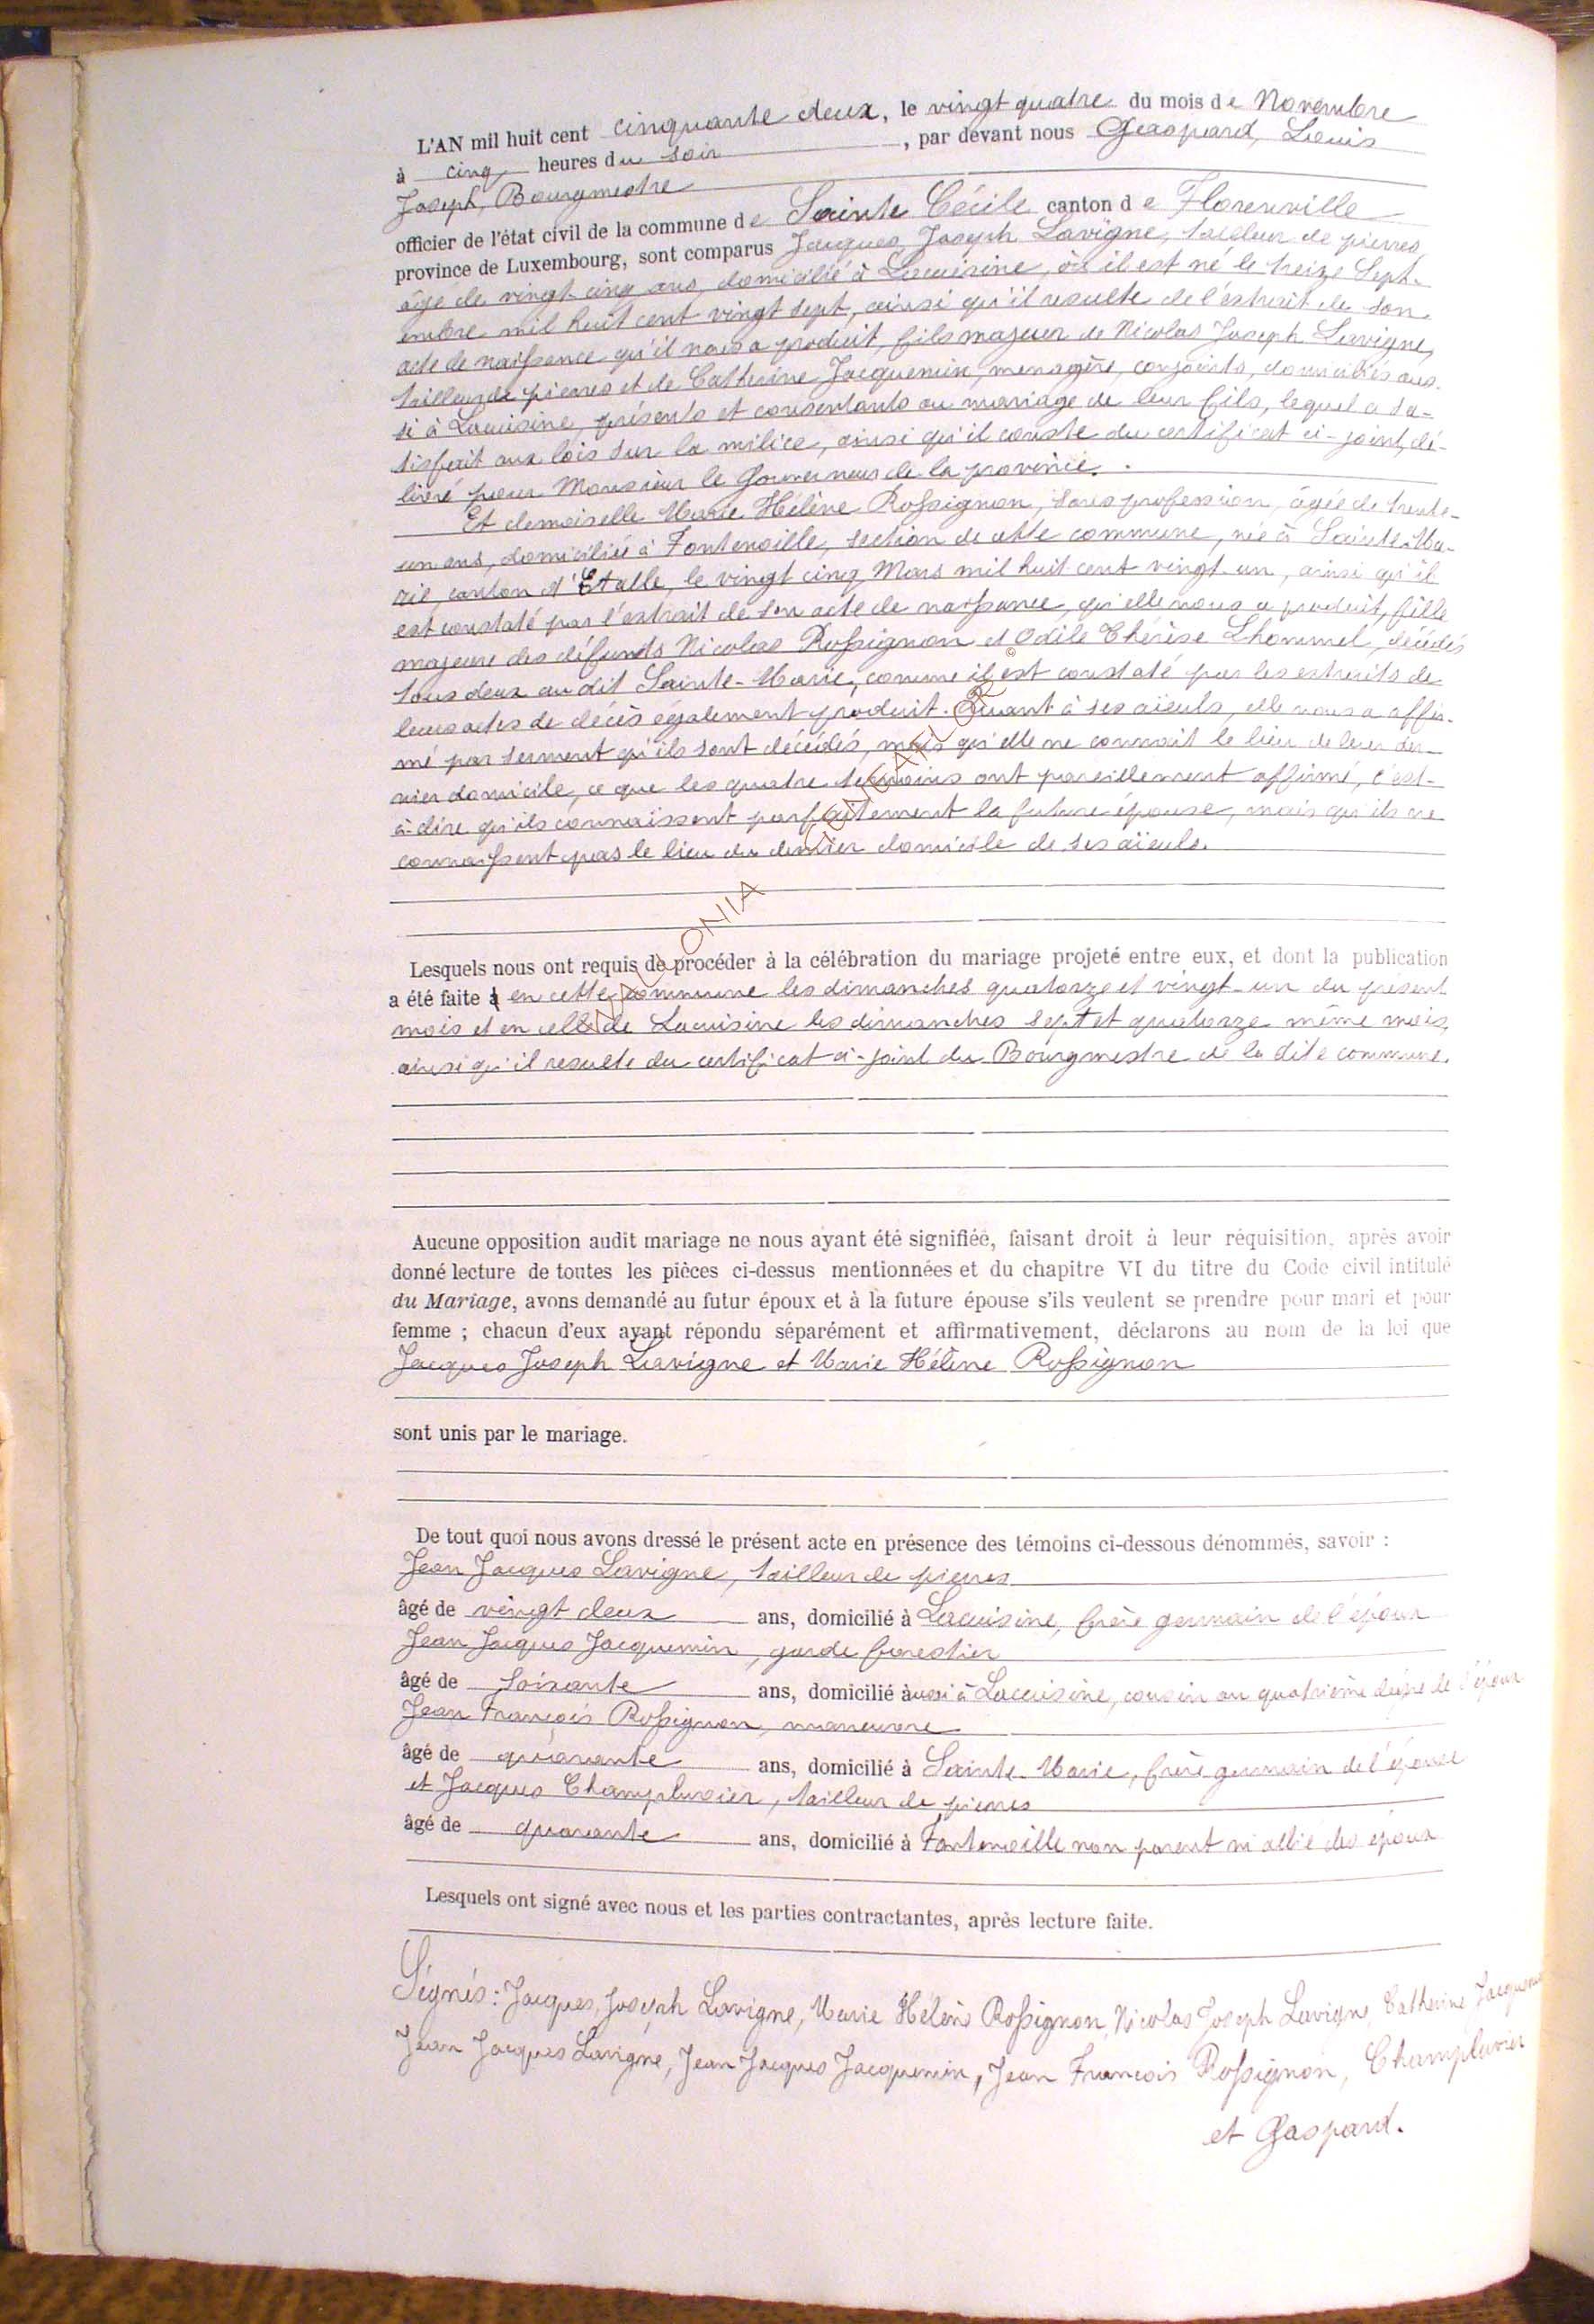 L'AN mil huit cent cinquante deux, le vingt quatre du mois de Novembre
à cinq heures du soir, par devant nous Gaspard, Louis
Joseph, Bourgmestre
officier de l'état civil de la commune de Sainte Cécile canton de Florenville
province de Luxembourg, sont comparus Jacques Joseph Lavigne, tailleur de pierres,
âgé de vingt-cinq ans, domicilié à Lacuisine, où il est né le treize Sept-
embre mil huit cent vingt sept, ainsi qu'il resulte de l'extrait de son
acte de naissance qu'il nous a produit, fils majeur de Nicolas Joseph Lavigne,
tailleur de pierres et de Catherine Jacquemin, menagère, conjoints, domiciliés aus-
si à Lacuisine, présents et consentants au mariage de leur fils, lequel a sa-
tisfait aux lois sur la milice, ainsi qu'il conste du certificat ci-joint, dé-
livré par Monsieur le Gouverneur de la province.
Et demoiselle Marie Hélène Rossignon, sans profession, âgée de trente-
un ans, domiciliée à Fontenoille, section de cette commune, née à Sainte-Ma-
rie, canton d'Etalle, le vingt cinq Mars mil huit cent vingt-un, ainsi qu'il
est constaté par l'extrait de son acte de naissance, qu'elle nous a produit, fille
majeure des défunts Nicolas Rossignon et Odile Thérèse Lhommel, décédés
tous deux au dit Sainte-Marie, comme il est constaté par les extraits de
leurs actes de décès également produit. Quant à ses aïeuls, elle nous a affir-
mé par serment qu'ils sont décédés, mais qu'elle ne connait le lieu de leur der-
nier domicile, ce que les quatre temoins ont pareillement affirmé, c'est-
à-dire qu'ils connaissent parfaitement la future épouse, mais qu'ils ne
connaissent pas le lieu du dernier domicile de ses aïeuls.
Lesquels nous ont requis de procéder à la célébration du mariage projeté entre eux, et dont la publication
a été faite à en cette commune les dimanches quatorze et vingt-un du présent
mois et en celle de Lacuisine les dimanches sept et quatorze même mois,
ainsi qu'il resulte du certificat ci-joint du Bourgmestre de la dite commune.
Aucune opposition audit mariage ne nous ayant été signifiée, faisant droit à leur réquisition, après avoir
donné lecture de toutes les pièces ci-dessus mentionnées et du chapitre VI du titre du Code civil intitulé
du Mariage, avons demandé au futur époux et à la future épouse s'ils veulent se prendre pour mari et pour
femme ; chacun d'eux ayant répondu séparément et affirmativement, déclarons au nom de la loi que
Jacques Joseph Lavigne et Marie Hélène Rossignon
sont unis par le mariage.
De tout quoi nous avons dressé le présent acte en présence des témoins ci-dessous dénommés, savoir :
Jean Jacques Lavigne, tailleur de pierres
âgé de vingt deux ans, domicilié à Lacuisine, frère germain de l'époux
Jean Jacques Jacquemin, garde forestier
âgé de soixante ans, domicilié aussi à Lacuisine, cousin au quatrième dégré de l'époux
Jean François Rossignon, maneuvre
âgé de quarante ans, domicilié à Sainte-Marie, frère germain de l'épouse
et Jacques Champluvier, tailleur de pierres
âgé de quarante ans, domicilié à Fontenoille non parent ni allié des époux
Lesquels ont signé avec nous et les parties contractantes, après lecture faite.
Signés : Jacques Joseph Lavigne, Marie Hélène Rossignon, Nicolas Joseph Lavigne, Catherine Jacquemin
Jean Jacques Lavigne, Jean Jacques Jacquemin, Jean François Rossignon, Champluvier
et Gaspard.